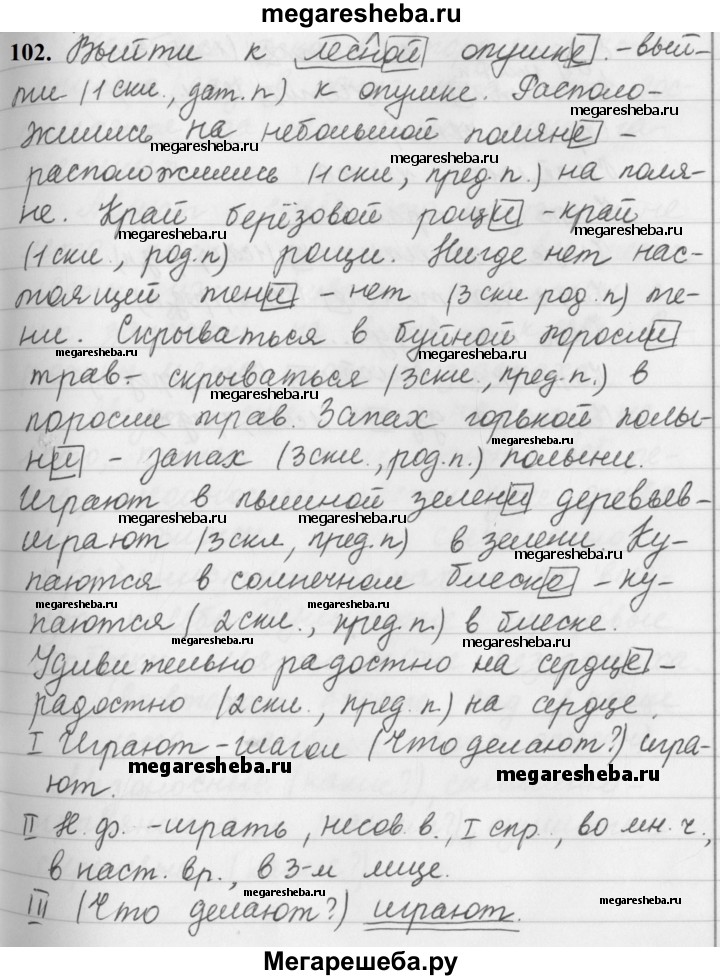 megaresheba.ru
102. Выйти к лесной опушке. - вый-
ти (1 скл., дат. п.) к опушке. Располо-
megaresheba.ru
жились на небольшой поляне -
megaresheba.ru megaresheba.ru
расположились (1 скл., пред. п.) на поля-
не. Край берёзовой рощи - край
megaresheba.ru megaresheba.ru
(1 скл., род. п) рощи. Нигде нет нас-
тоящей тени - нет (3 скл. род. п) те-
ни. Скрываться в буйной поросли
megaresheba.ru megaresheba.ru
трав - скрываться (3 скл., пред. п.) в
megaresheba.ru
поросли трав. Запах горькой полы-
ни - запах (3 скл., род. п.) полыни.
megaresheba.ru megaresheba.ru
Играют в пышной зелени деревьев -
megaresheba.ru megaresheba.ru
играют (3 скл, пред. п) в зелени. Ку-
megaresheba.ru
паются в солнечном блеске - ку-
megaresheba.ru megaresheba.ru
паются (2 скл., пред. п.) в блеске.
megaresheba.ru
Удивительно радостно на сердце -
megaresheba.ru megaresheba.ru
радостно (2 скл., пред. п.) на сердце.
I Играют - глагол (Что делают?) игра-
megaresheba.ru megaresheba.ru
ют.
II Н. ф. - играть, несов. в., I спр., во мн. ч.,
megaresheba.ru
в наст. вр., в 3-м лице.
megaresheba.ru
III (Что делают?) играют.
megaresheba.ru megaresheba.ru
Мегарешеба.ру